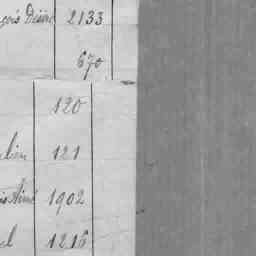 çois Désiré 2133
670
120
lien 121
is Aimé 1902
el 1216